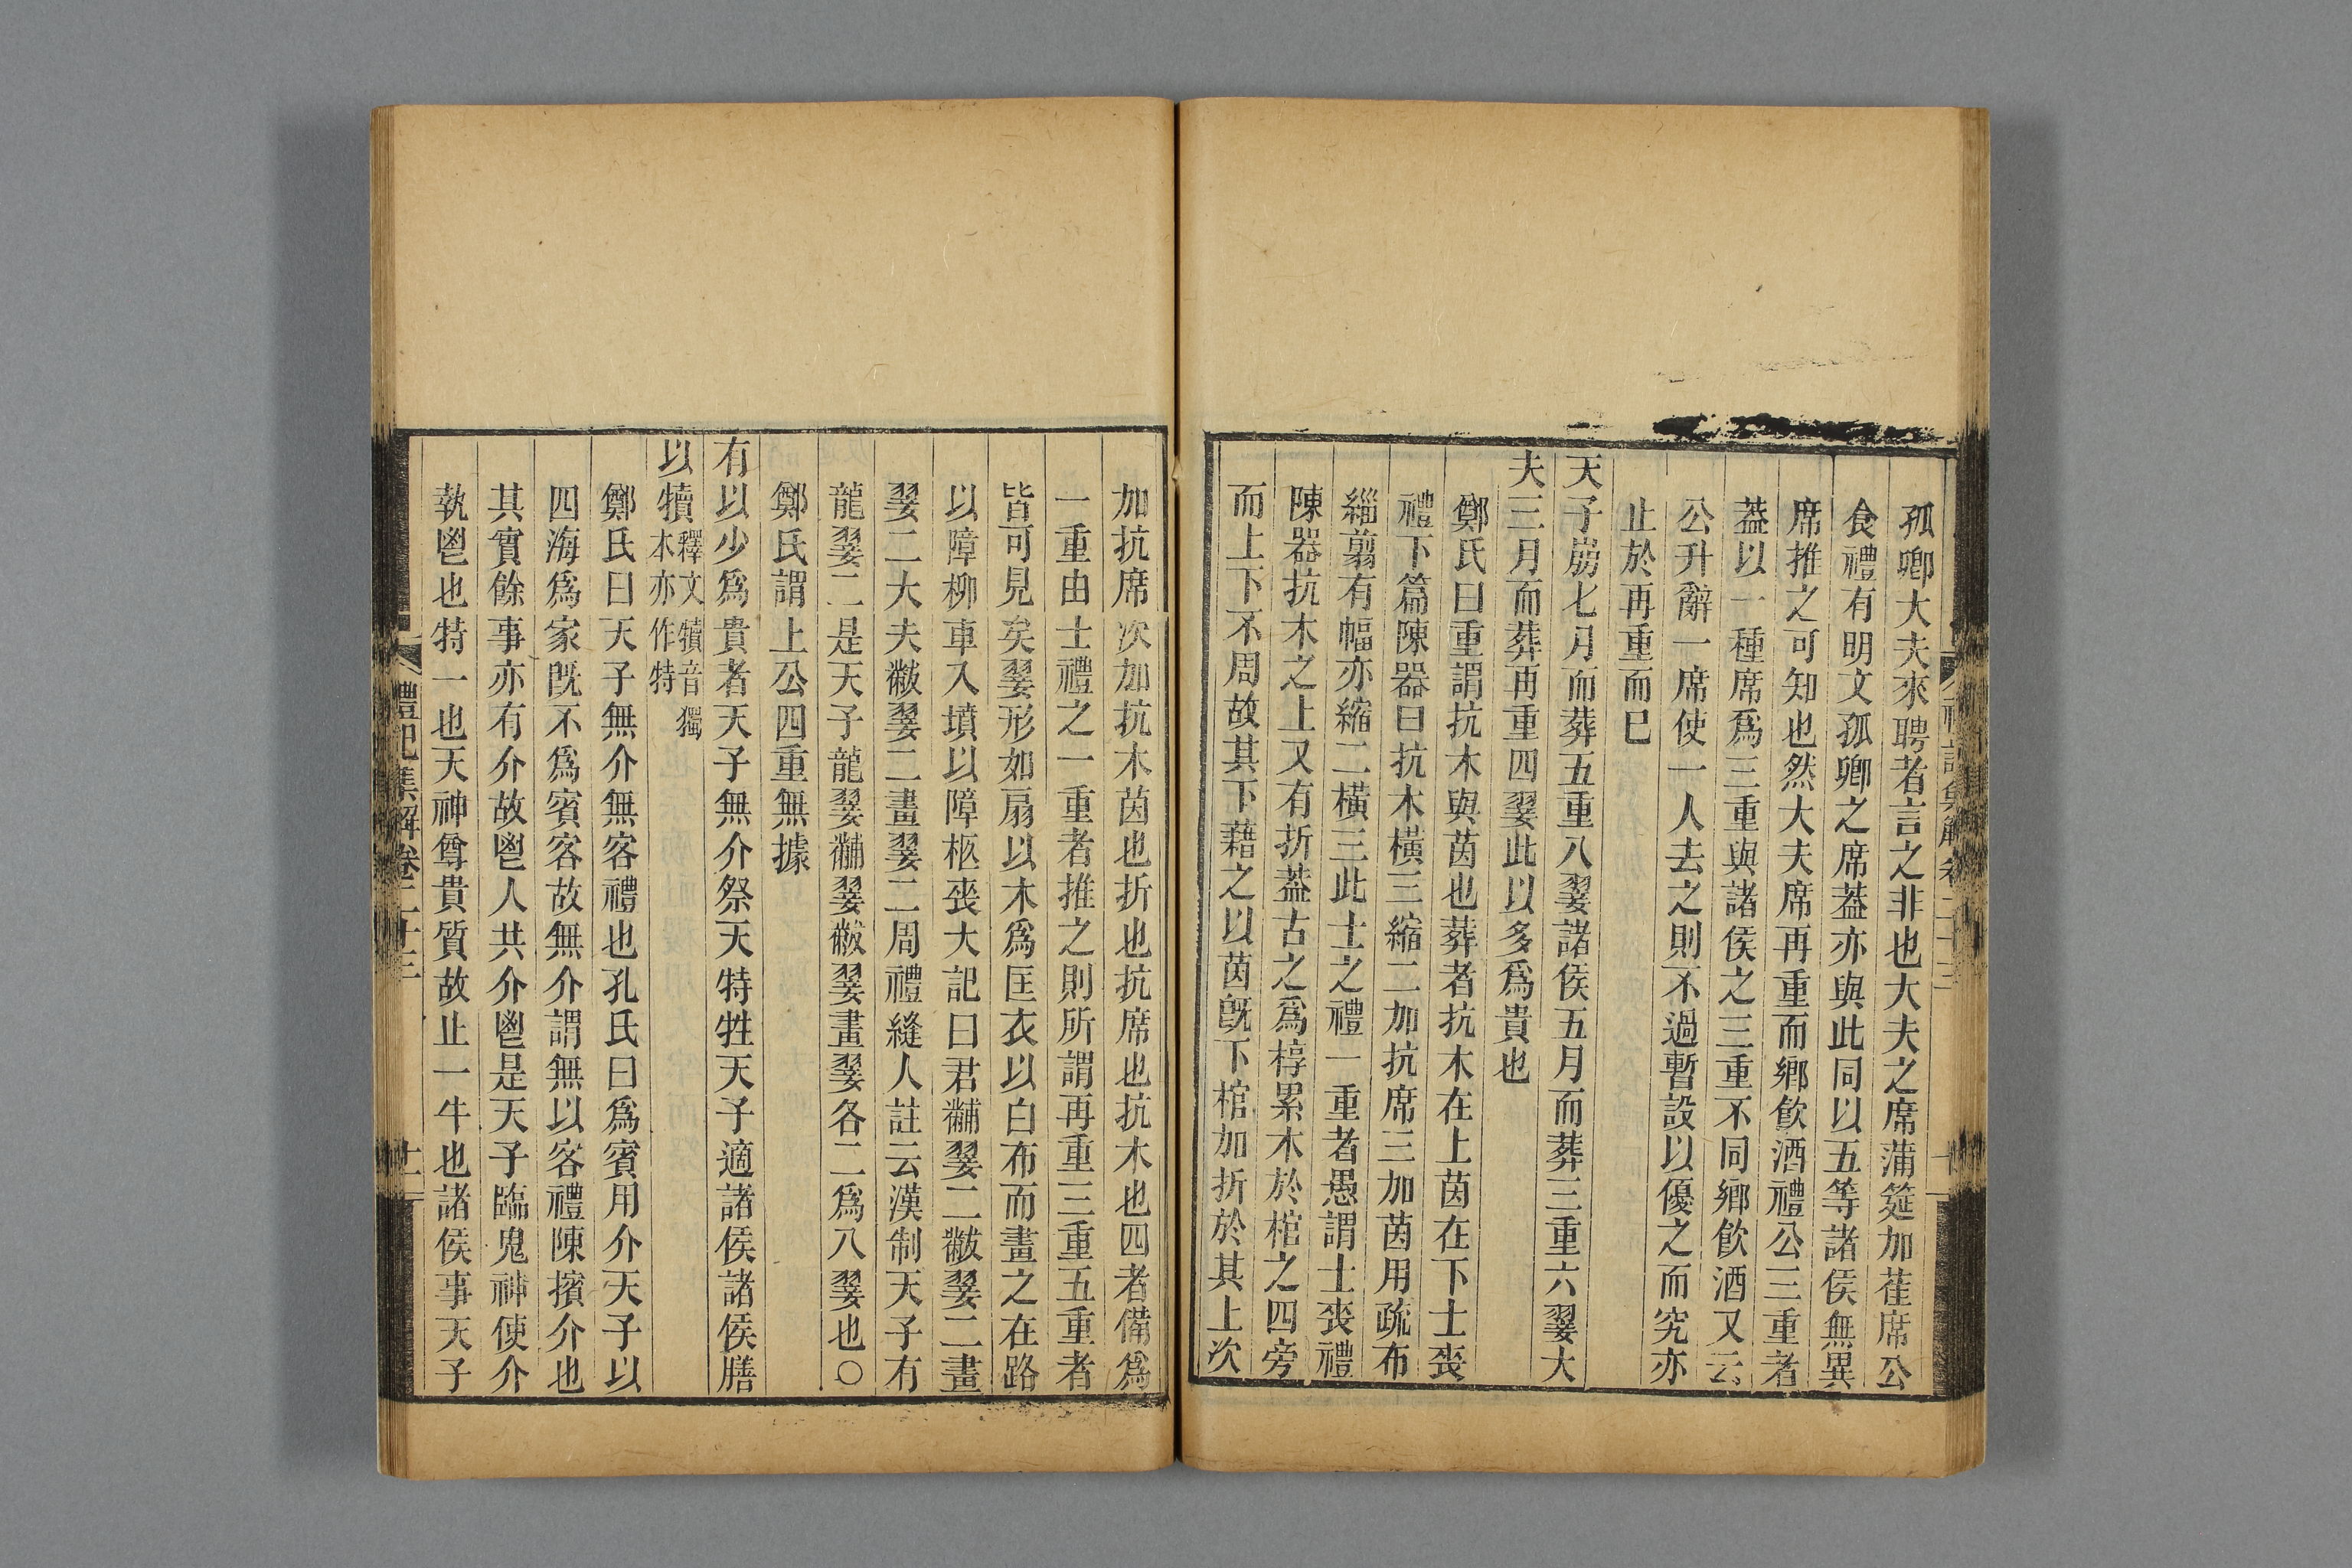 孤卿大夫來聘者言之非也大夫之席蒲筵加萑席公
食禮有明文孤卿之席葢亦與此同以五等諸侯無異
席推之可知也然大夫席再重而鄉飲酒禮公三重者
葢以一種席爲三重與諸侯之三重不同鄉飲酒又云
公升辭一席使一人去之則不過暫設以優之而究亦
止於再重而已
天子崩七月而葬五重八翣諸侯五月而葬三重六翣大
夫三月而葬再重四翣此以多爲貴也
鄭氏曰重謂抗木與茵也葬者抗木在上茵在下士喪
禮下篇陳器曰抗木橫三縮二加抗席三加茵用疏布
緇翦有幅亦縮二橫三此士之禮一重者愚謂士喪禮
陳器抗木之上又有折葢古之爲椁累木於棺之四旁
而上下不周故其下藉之以茵旣下棺加折於其上次
加抗席次加抗木茵也折也抗席也抗木也四者備爲
一重由士禮之一重者推之則所謂再重三重五重者
皆可見矣翣形如扇以木爲匡衣以白布而畫之在路
以障柳車入墳以障柩喪大記曰君黼翣二黻翣二畫
翣二大夫黻翣二畫翣二周禮縫人註云漢制天子有
龍翣二是天子龍翣黼翣黻翣畫翣各二爲八翣也○
鄭氏謂上公四重無據
有以少爲貴者天子無介祭天特牲天子適諸侯諸侯膳
以犢釋文犢音獨本亦作特
鄭氏曰天子無介無客禮也孔氏曰爲賓用介天子以
四海爲家旣不爲賓客故無介謂無以客禮陳擯介也
其實餘事亦有介故鬯人共介鬯是天子臨鬼神使介
執鬯也特一也天神尊貴質故止一牛也諸侯事天子
禮記集解卷二十三
十一